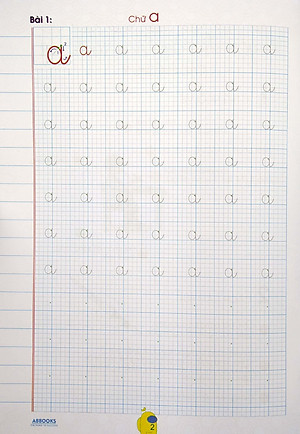 Bài 1: Chữ a
a a a a a a a
a a a a a a a
a a a a a a a
a a a a a a a
a a a a a a a
a a a a a a a
a a a a a a a
ABBOOKS
2